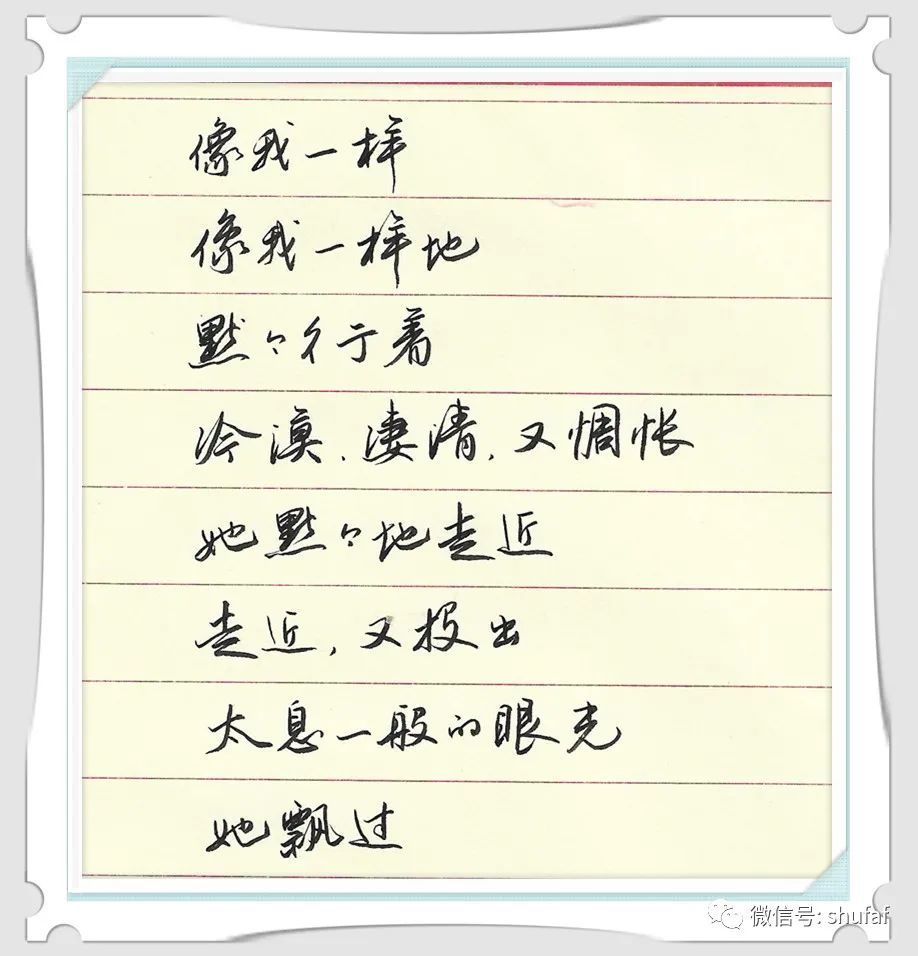 像我一样
像我一样地
默々彳亍着
冷漠、凄清,又惆怅
她默々地走近
走近,又投出
太息一般的眼光
她飘过
微信号: shufaf